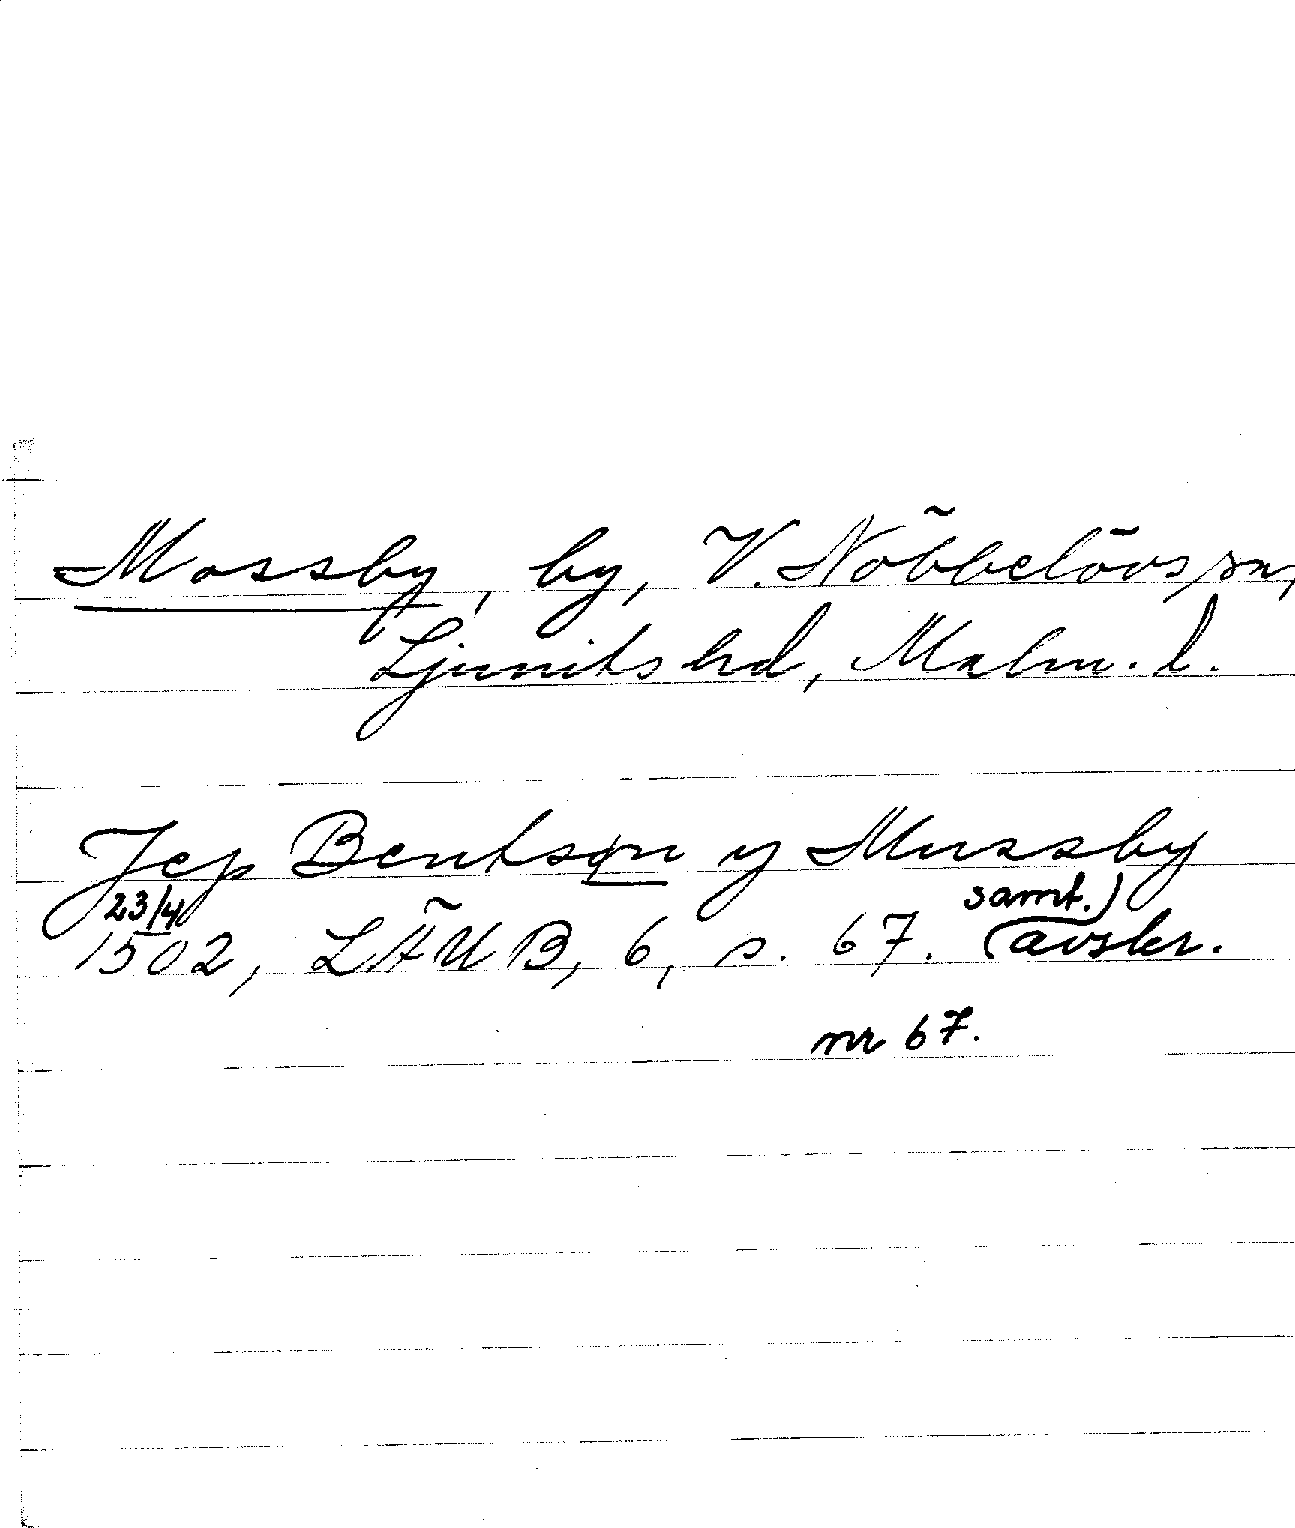 Mossby, by, V. Nöbbelövs sn,
Ljunits hd, Malm. l.
Jep Bentsøn y Mussby
23/4 samt.)
1502, LÄUB, 6, s. 67. (avskr.
nr 67.